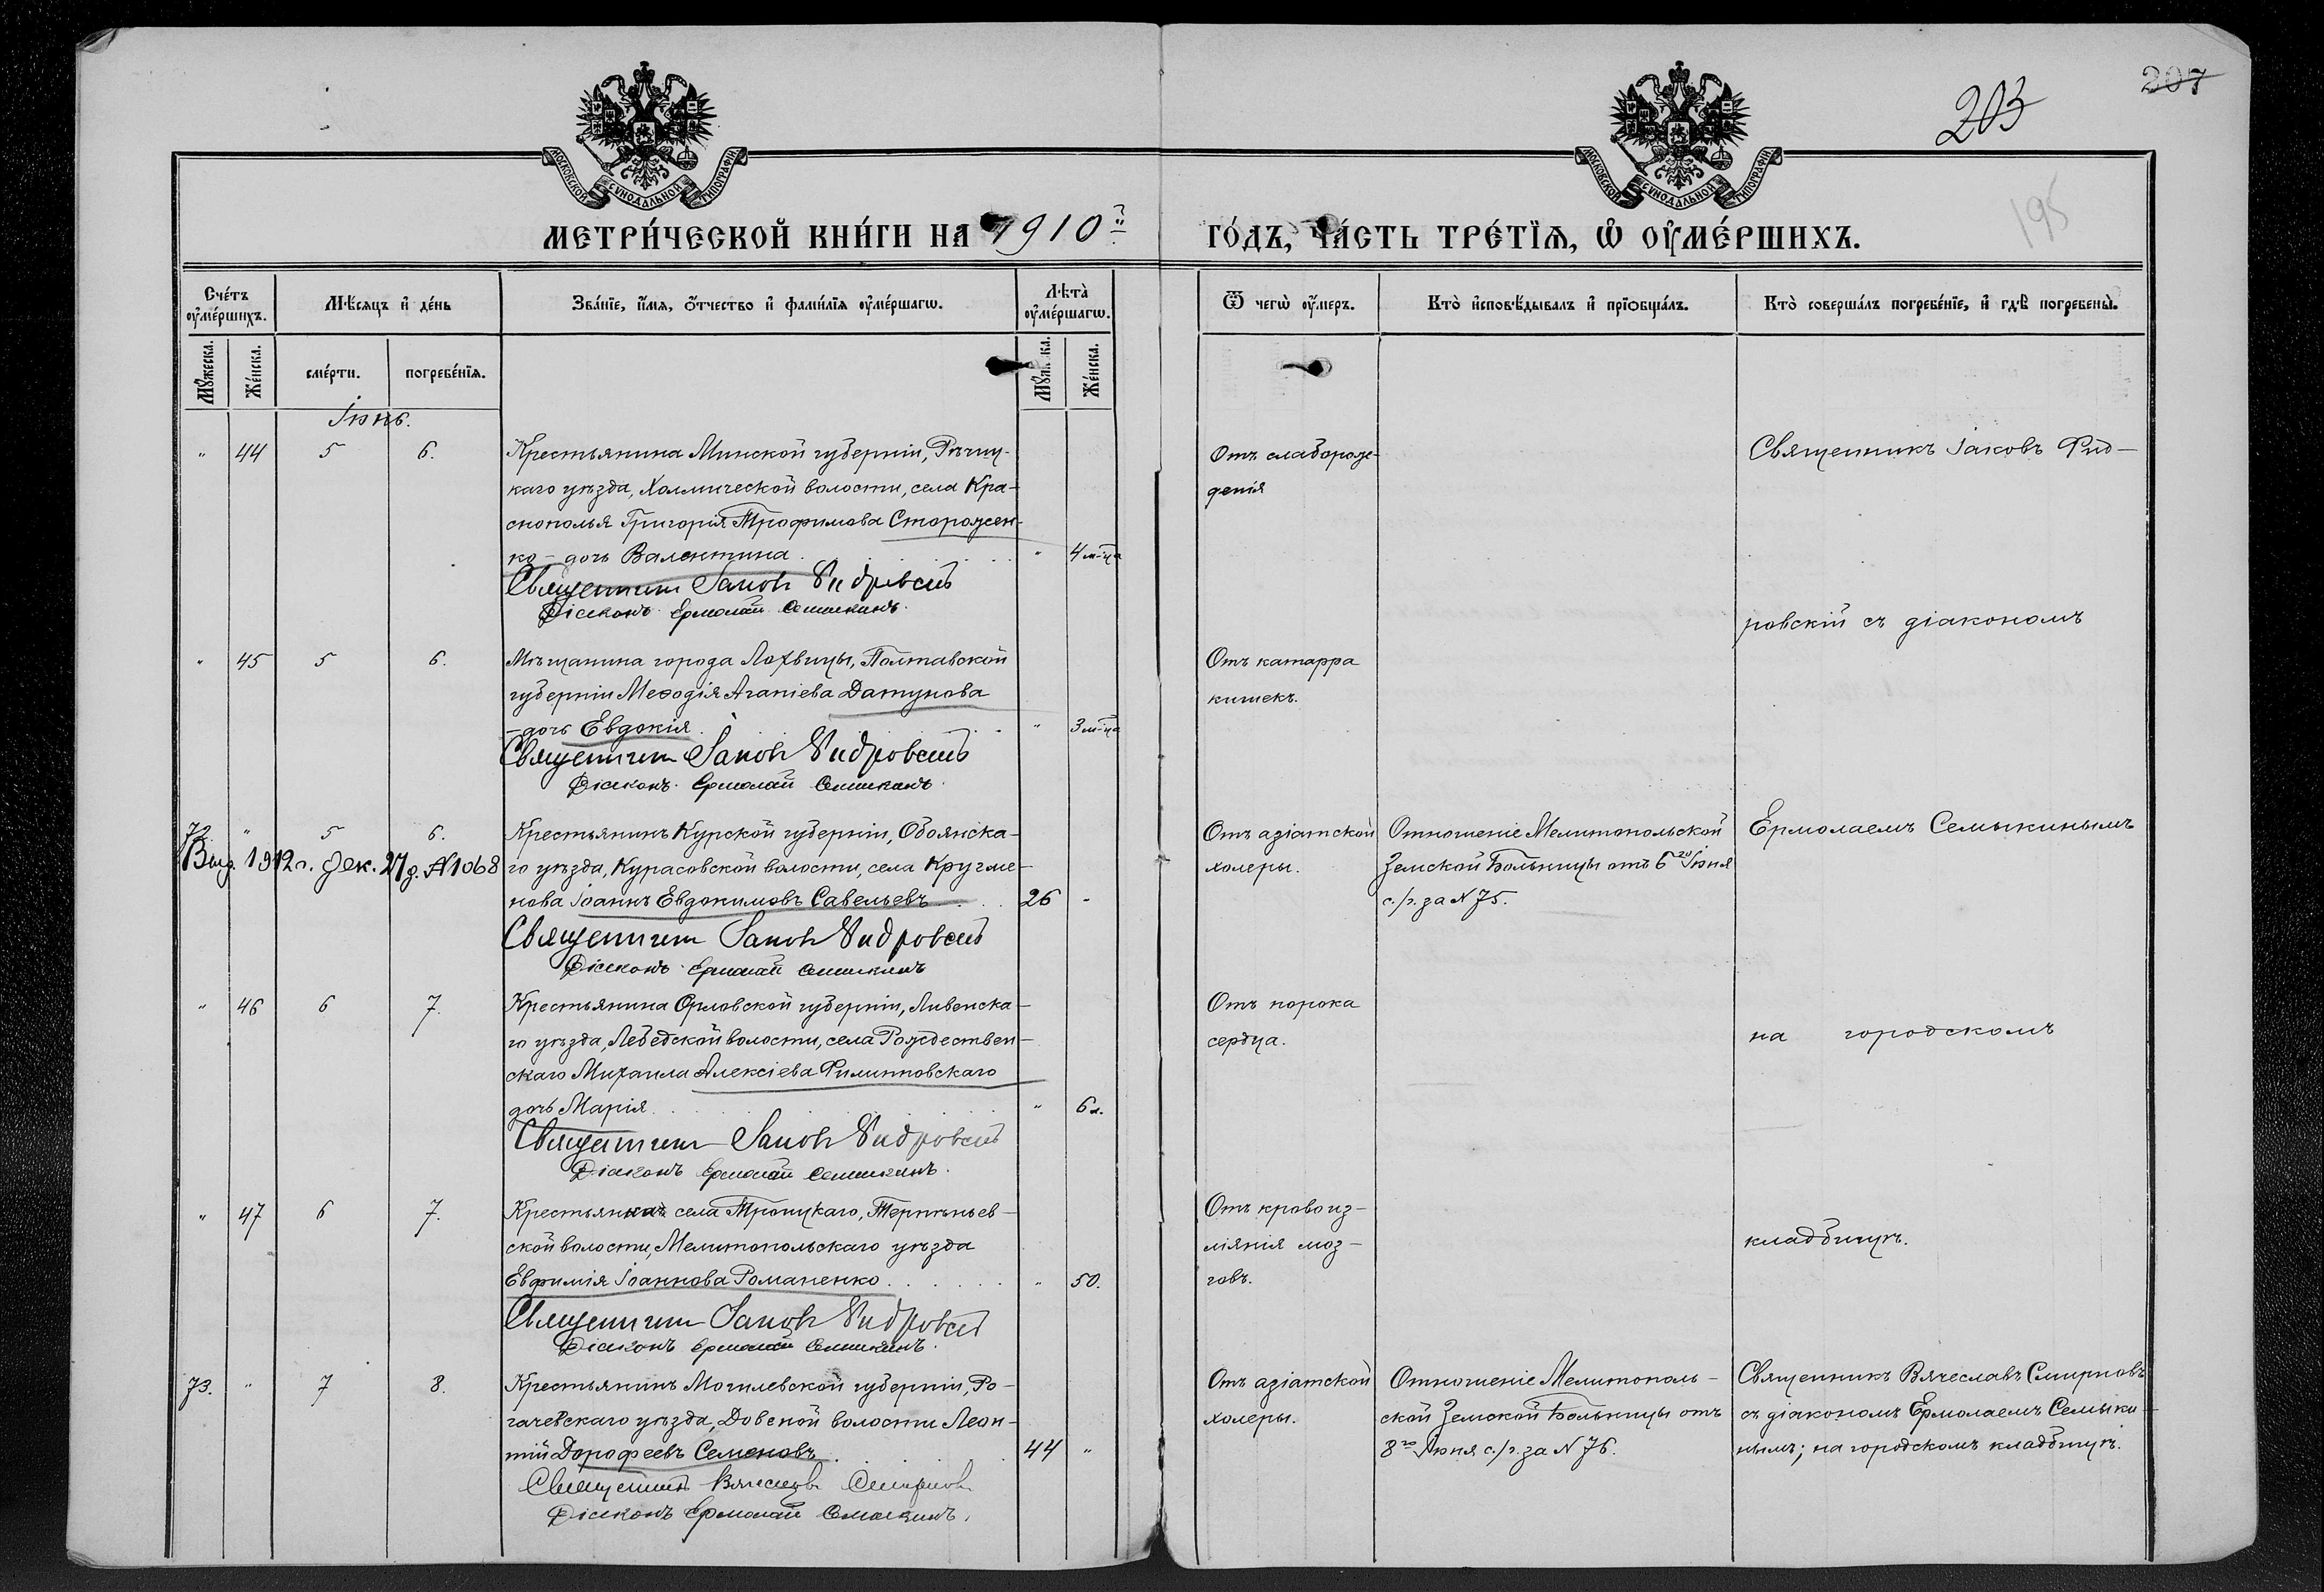 207
203
195
МОСКОВСКОЙ СѴНОДАЛЬНОЙ ТИПОГРАФІИ
МОСКОВСКОЙ СѴНОДАЛЬНОЙ ТИПОГРАФІИ
МЕТРИ́ЧЕСКОЙ КНИ́ГИ НА 1910й
ГО́ДЪ, ЧА́СТЬ ТРЕ́ТЇѦ, Ѡ҆ ОУ҆МЕ́РШИХЪ.
Сче́тъ оу҆ме́ршихъ.
Мꙋ́жеска.
Же́нска.
Мѣ́сяцъ и҆ де́нь
сме́рти.
погребе́нїѧ.
Зва́нїе, и҆́мѧ, ѻ҆́тчество и҆ фамі́лїѧ оу҆ме́ршагѡ.
Лѣ́та̀ оу҆ме́ршагѡ.
Мꙋ́жска.
Же́нска.
Ѿ чегѡ̀ оу҆́меръ.
Кто̀ и҆сповѣ́дывалъ и҆ прїѻбща́лъ.
Кто̀ соверша́лъ погребе́нїе, и҆ гдѣ̀ погребены̀.
Іюнь.
" 44 5 6.
Крестьянина Минской губерніи, Рѣчиц-
каго уѣзда, Холмической волости, села Кра-
снополья Григорія Трофимова Сторожен-
ко - дочь Валентина . " 4 м-ца
Священникъ Іаковъ Видровскій
Діаконъ Ермолай Семыкинъ.
Отъ слаборож-
денія
Священникъ Іаковъ Вид-
ровскій съ діакономъ
" 45 5 6.
Мѣщанина города Лохвицы, Полтавской
губерніи Меѳодія Агапіева Датунова
- дочь Евдокія . " 3 м-ца
Священникъ Іаковъ Видровскій
Діаконъ Ермолай Семыкинъ.
Отъ катарра
кишекъ.
72 " 5 6.
Выд. 1912 г. Дек. 27 д. № 1068
Крестьянинъ Курской губерніи, Обоянска-
го уѣзда, Курасовской волости, села Кругле-
нова Іоаннъ Евдокимовъ Савельевъ . . . 26 -
Священникъ Іаковъ Видровскій
Діаконъ Ермолай Семыкинъ
Отъ азіатской
холеры.
Отношеніе Мелитопольской
Земской Больницы отъ 6го Іюня
с./г. за № 75.
Ермолаемъ Семыкинымъ
" 46 6 7.
Крестьянина Орловской губерніи, Ливенска-
го уѣзда, Лебедской волости, села Рождествен-
скаго Михаила Алексіева Филипповскаго
дочь Марія . " 6 л.
Священникъ Іаковъ Видровскій
Діаконъ Ермолай Семыкинъ.
Отъ порока
сердца.
на городскомъ
" 47 6 7.
Крестьянка села Троицкаго, Терпѣньев-
ской волости, Мелитопольскаго уѣзда
Евфимія Іоаннова Романенко . . . " 50.
Священникъ Іаковъ Видровскій
Діаконъ Ермолай Семыкинъ.
Отъ кровоиз-
ліянія моз-
говъ.
кладбищѣ.
73. " 7 8.
Крестьянинъ Могилевской губерніи, Ро-
гачевскаго уѣзда, Довской волости Леон-
тій Дорофеевъ Семеновъ . 44 "
Священникъ Вячеславъ Смирновъ
Діаконъ Ермолай Семыкинъ.
Отъ азіатской
холеры.
Отношеніе Мелитополь-
ской Земской Больницы отъ
8го Іюня с./г. за № 76.
Священникъ Вячеславъ Смирновъ
съ діакономъ Ермолаемъ Семыки-
нымъ; на городскомъ кладбищѣ.